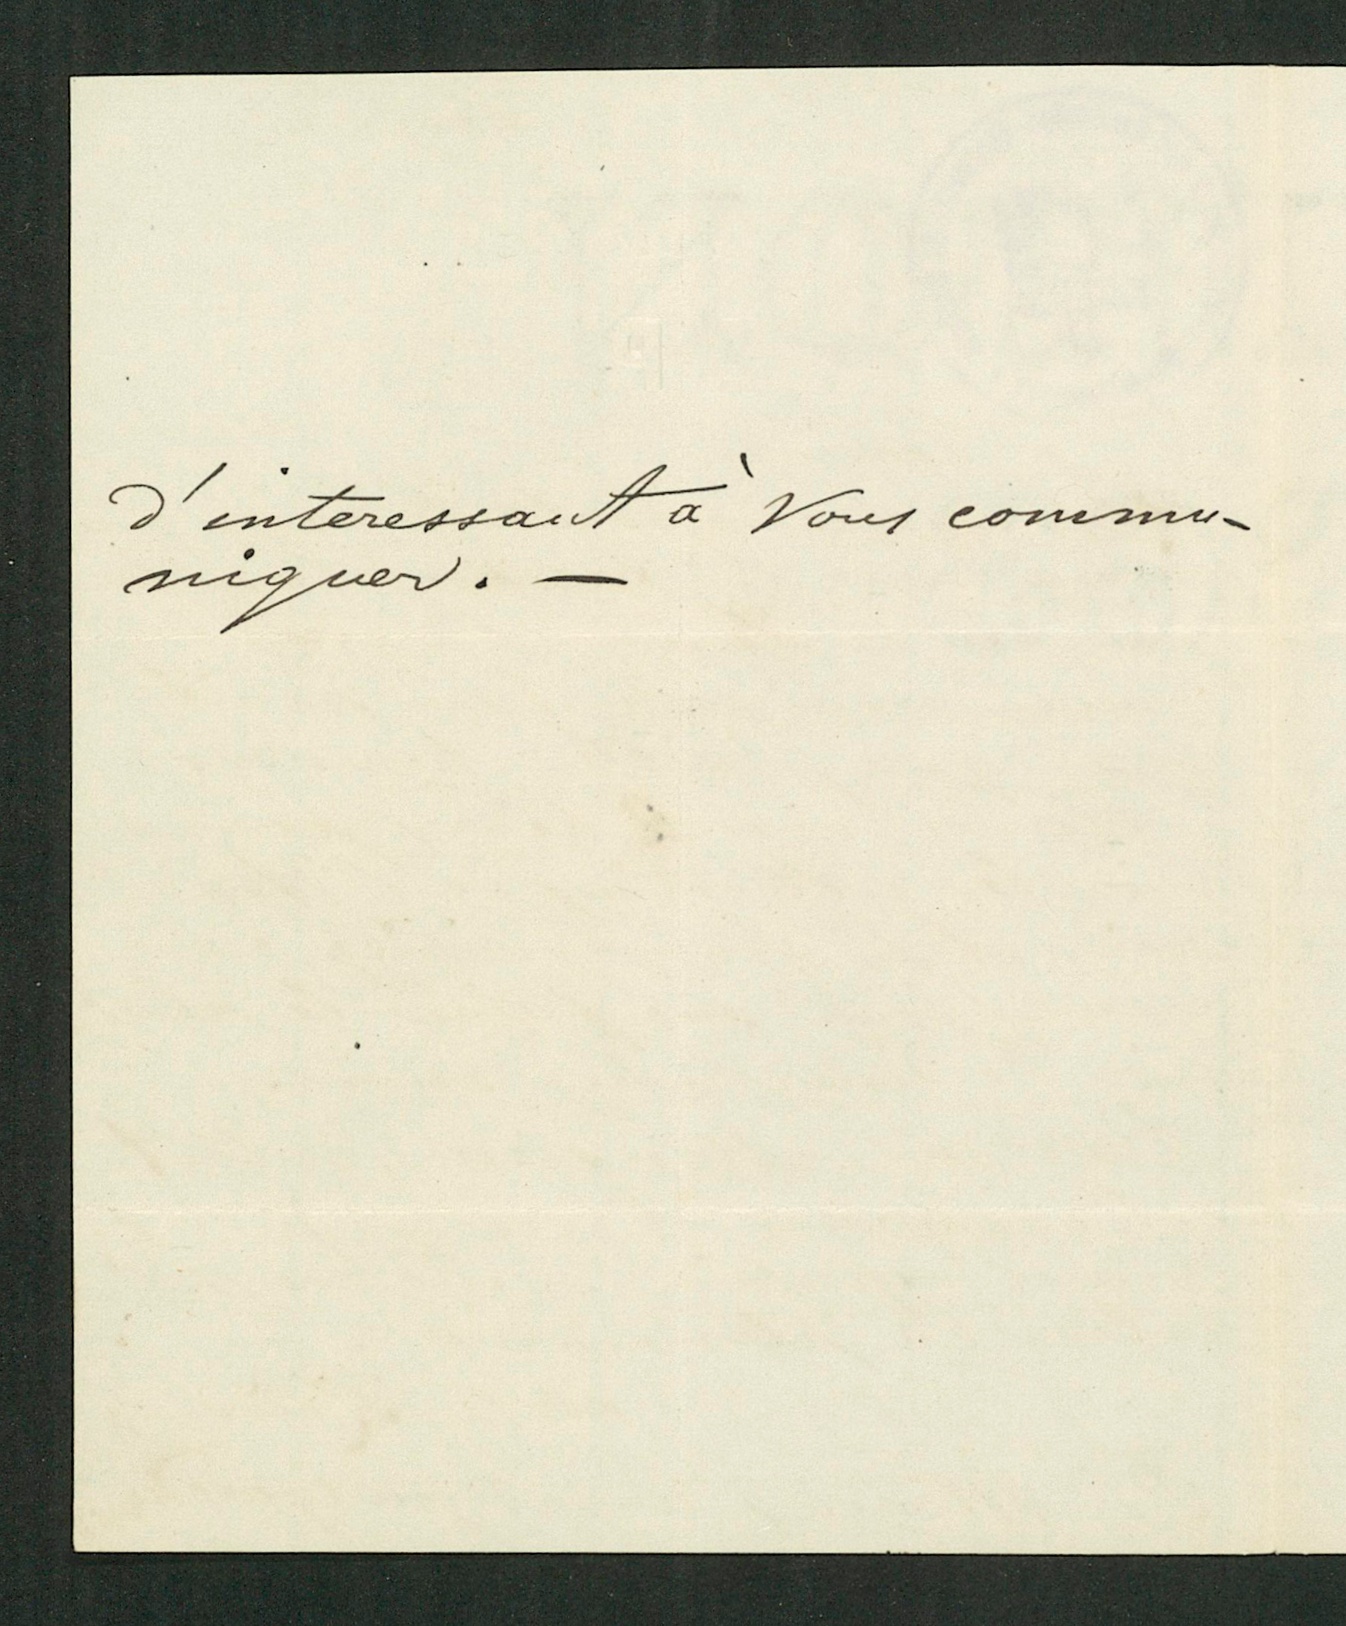 d'interessant à Vous commu-
niquer. —